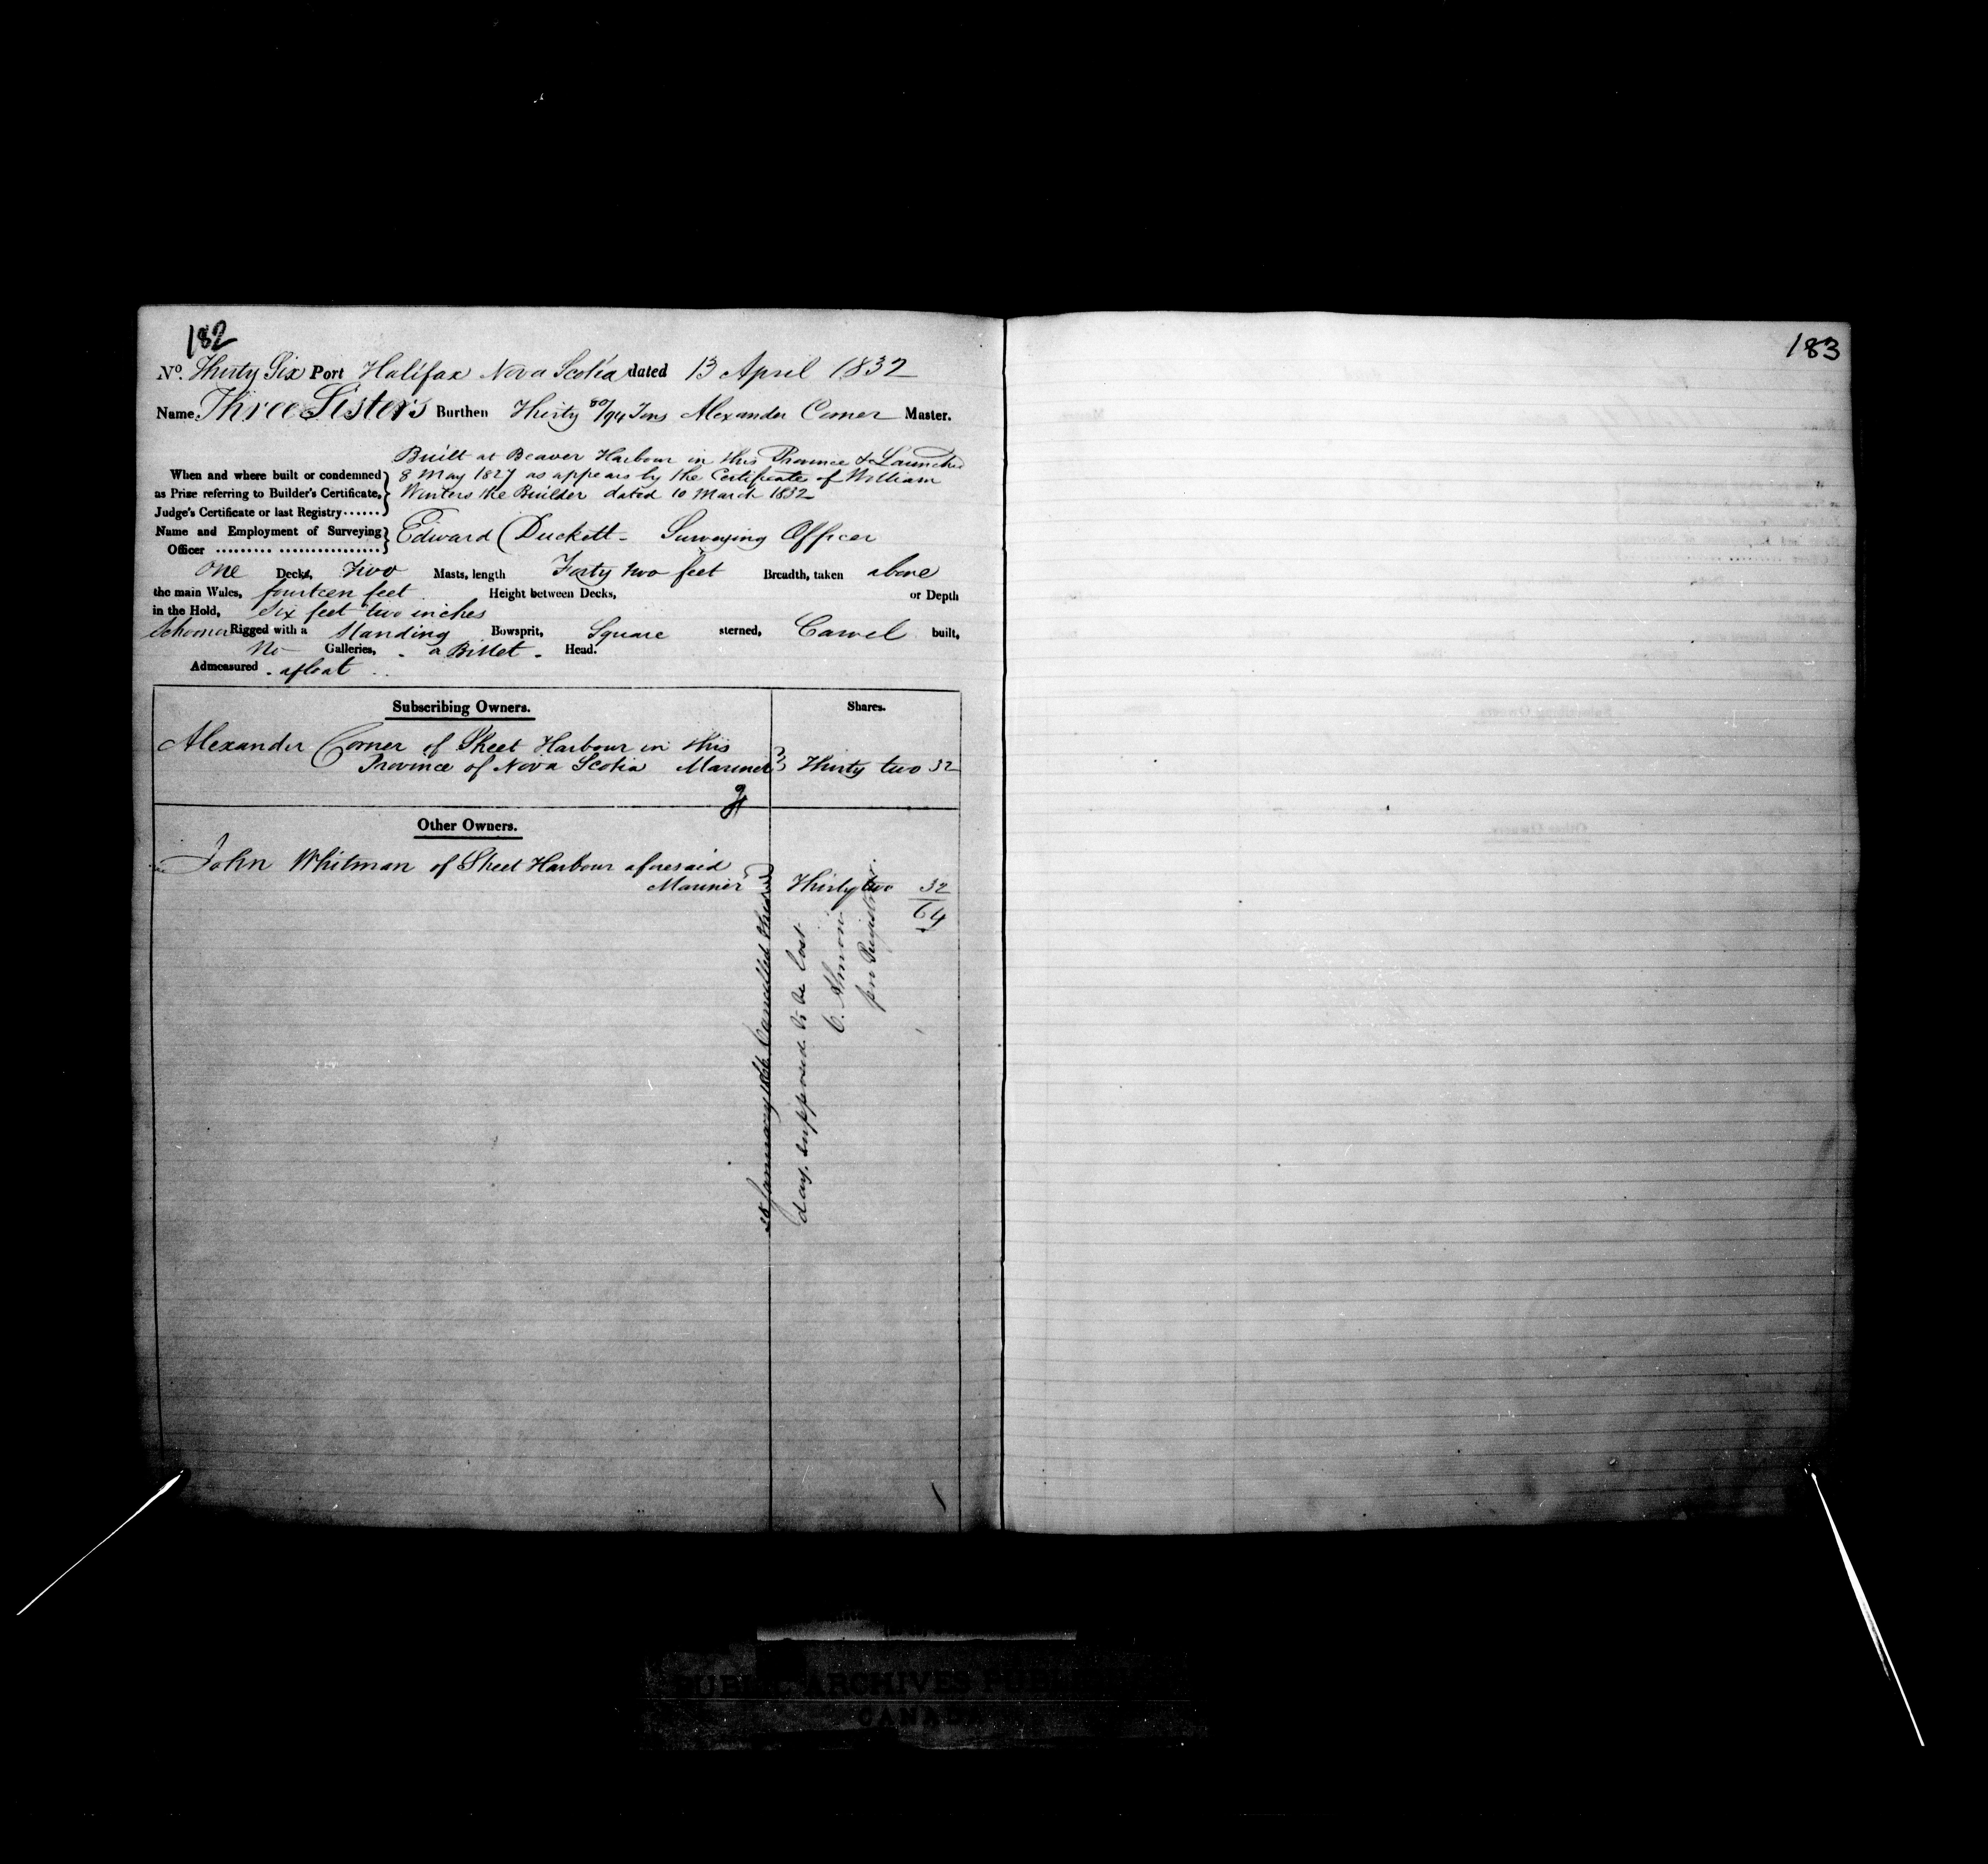 182
No. Thirty Six Port Halifax Nova Scotia dated 13 April 1832
Name Three Sisters Burthen Thirty 50/94 Tons Alexander Comer Master.
Built at Beaver Harbour in this Province & Launched
When and where built or condemned 8 May 1827 as appears by the Certificate of William
as Prize referring to Builder's Certificate, Winters the Builder dated 10 March 1832
Judge's Certificate or last Registry ......
Name and Employment of Surveying Edward Duckett - Surveying Officer
Officer .......... .................
One Decks, Two Masts, length Forty two feet Breadth, taken above
the main Wales, fourteen feet Height between Decks, or Depth
in the Hold, Six feet two inches
Schooner Rigged with a Standing Bowsprit, Square sterned, Carvel built,
No Galleries, a Billet Head.
Admeasured afloat
Subscribing Owners. Shares.
Alexander Comer of Sheet Harbour in this
Province of Nova Scotia Mariner Thirty two 32
Other Owners.
John Whitman of Sheet Harbour aforesaid
Mariner Thirty two 32
64
January Cancelled this
day, supposed to be lost
C. Almon
per Registrar
183
PUBLIC ARCHIVES PUBLIQUES
CANADA